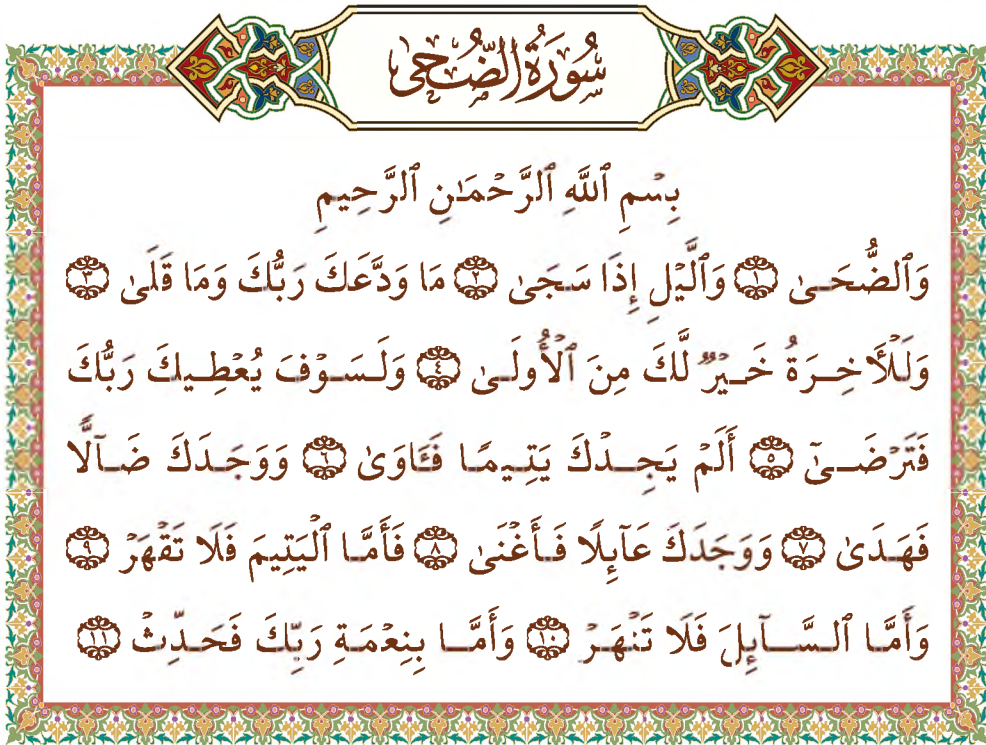 سُورَةُ الضُّحَىٰ
بِسْمِ ٱللَّهِ ٱلرَّحْمَـٰنِ ٱلرَّحِيمِ
وَٱلضُّحَىٰ ١ وَٱلَّيْلِ إِذَا سَجَىٰ ٢ مَا وَدَّعَكَ رَبُّكَ وَمَا قَلَىٰ ٣
وَلَلْأَخِرَةُ خَيْرٌ لَّكَ مِنَ ٱلْأُولَىٰ ٤ وَلَسَوْفَ يُعْطِيكَ رَبُّكَ
فَتَرْضَىٰٓ ٥ أَلَمْ يَجِدْكَ يَتِيمًا فَـَٔاوَىٰ ٦ وَوَجَدَكَ ضَآلًّا
فَهَدَىٰ ٧ وَوَجَدَكَ عَآئِلًا فَأَغْنَىٰ ٨ فَأَمَّا ٱلْيَتِيمَ فَلَا تَقْهَرْ ٩
وَأَمَّا ٱلسَّآئِلَ فَلَا تَنْهَرْ ١٠ وَأَمَّا بِنِعْمَةِ رَبِّكَ فَحَدِّثْ ١١